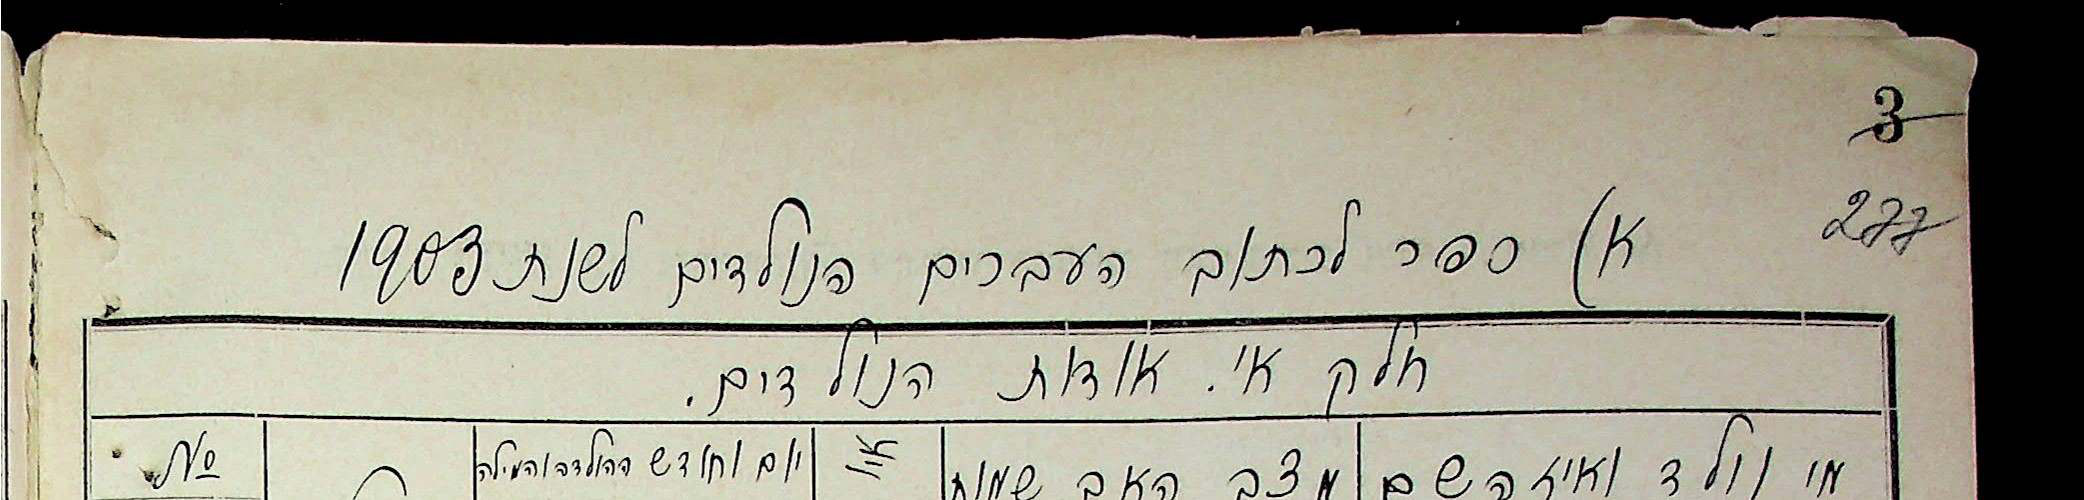 3
277
א) ספר לכתוב העברים הנולדים לשנת 1903
חלק א'. אודות הנולדים.
מי נולד ואיזה שם
מצב האב שמות
יום וחודש ההולדה והמילה
№